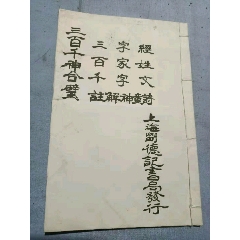 上海劉德記書局發行
三字經
百家姓
千字文
神童詩
註解
三百千神合璧